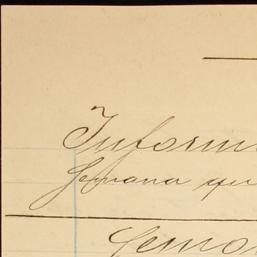 Inform
Semana qu
Semo